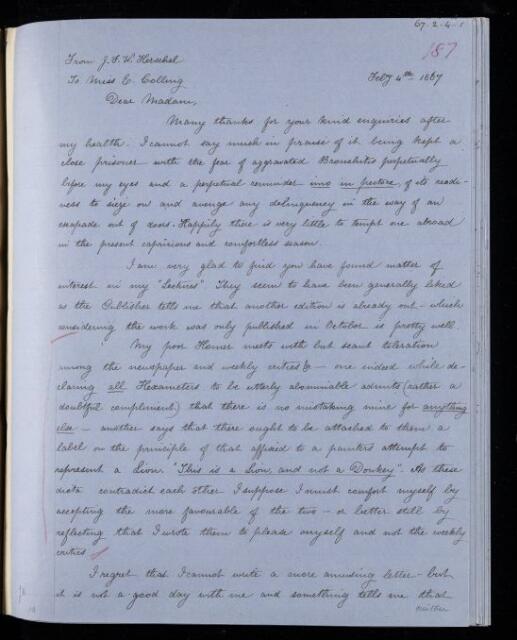 67-2-4-1
187
From J. F. W. Herschel
To Miss C. Colling
Feby 4th 1867
Dear Madam,
Many thanks for your kind enquiries after
my health. I cannot say much in praise of it being kept a
close prisoner with the fear of aggravated Bronchitis perpetually
before my eyes and a perpetual reminder imo in pectore, of its readi-
ness to sieze on and avenge any delinquency in the way of an
escapade out of doors. Happily there is very little to tempt one abroad
in the present capricious and comfortless season.
I am very glad to find you have found matter of
interest in my "Lectures". They seem to have been generally liked
as the Publisher tells me that another edition is already out - which
considering the work was only published in October is pretty well.
My poor Homer meets with but scant toleration
among the newspaper and weekly critics &c - one indeed while de-
claring all Hexameters to be utterly abominable admits (rather a
doubtful compliment) that there is no mistaking mine for anything
else - another says that there ought to be attached to them a
label on the principle of that affixed to a painter's attempt to
represent a Lion. "This is a Lion, and not a Donkey". As these
dicta contradict each other I suppose I must comfort myself by
accepting the more favourable of the two - or better still by
reflecting that I wrote them to please myself and not the weekly
critics.
I regret that I cannot write a more amusing letter - but
it is not a good day with me and something tells me that
neither